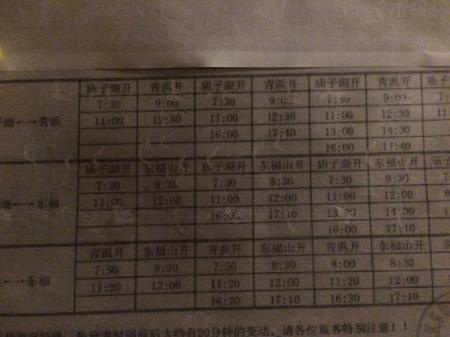 庙子湖开 青浜开 庙子湖开 青浜开 庙子湖开 青浜开
7:30 9:00 7:30 9:00 7:30 9:00
湖←→青浜 11:00 12:30 11:00 12:30 11:00 12:30
16:00 17:40 13:00 14:30
16:00 17:40
庙子湖开 东福山开 庙子湖开 东福山开 庙子湖开 东福山开
7:30 8:30 7:30 8:30 7:30
湖←→东福 11:00 12:00 11:00 12:00 11:00 12:00
16:00 17:10 13:00
16:00 17:10
青浜开 东福山开 青浜开 东福山开 青浜开 东福山开
7:50 8:30 7:50 8:30 8:00 8:30
←→东福 11:20 12:00 11:20 12:00 11:20 12:00
16:20 17:10 16:30 17:10
时间前后大约有20分钟的变动，请各位旅客特别注意！！